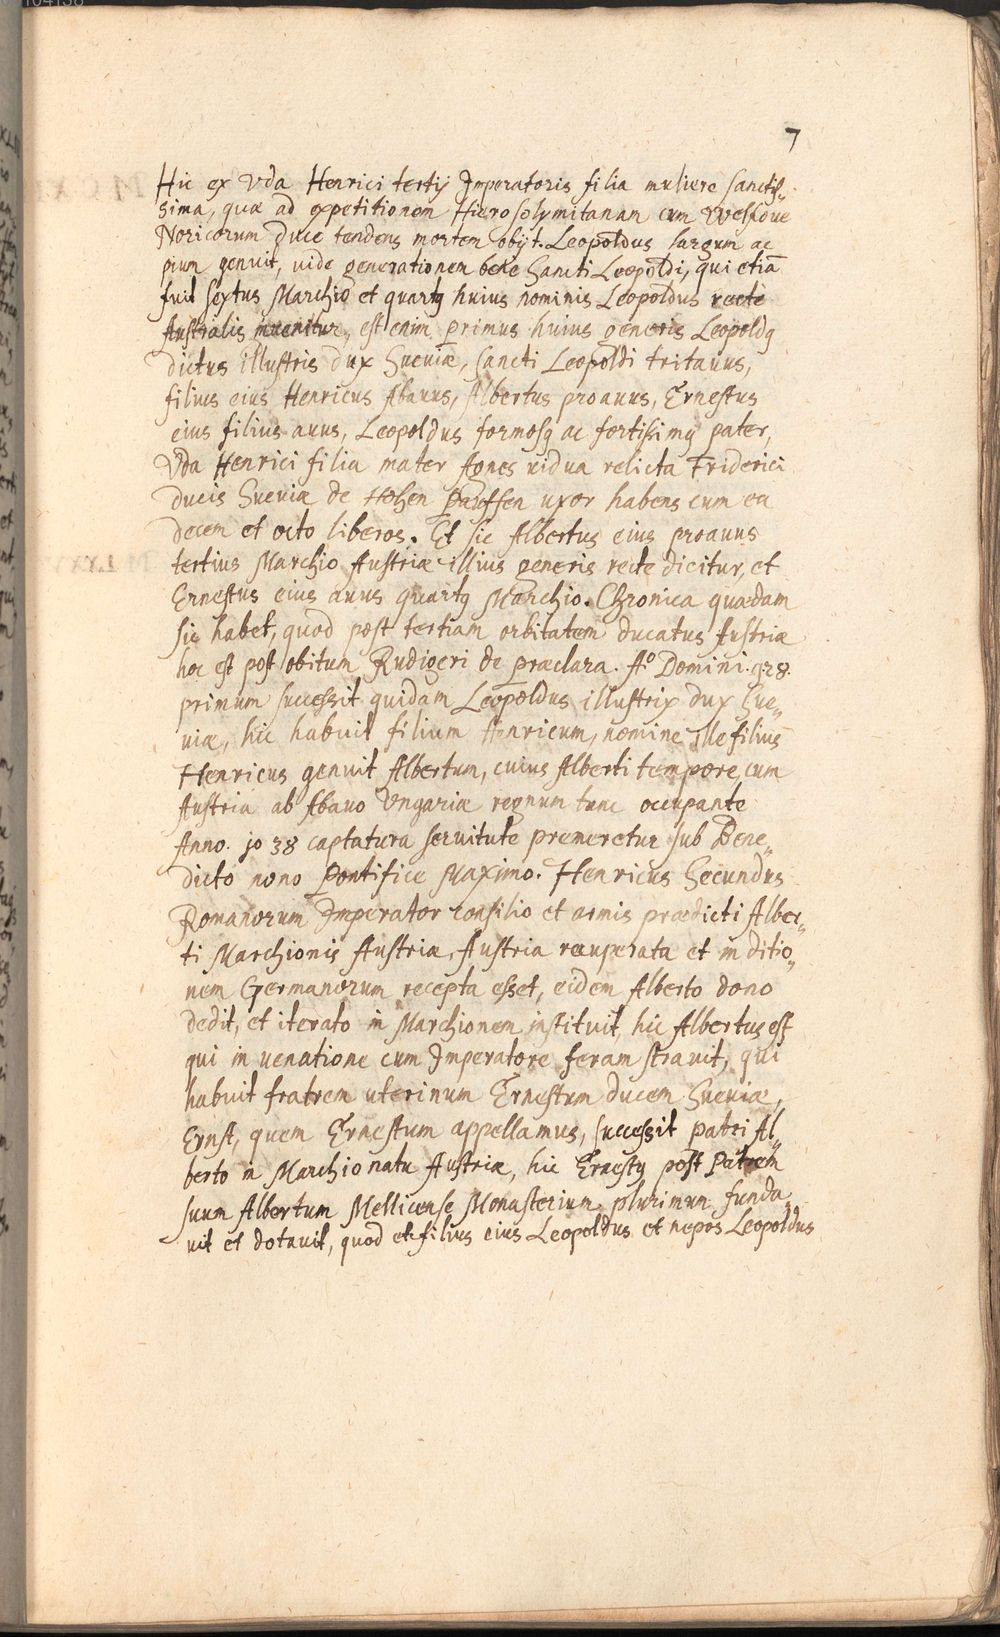 7
Hic ex Vda Henrici tertij Imperatoris filia muliere Sanctis„
sima, quæ ad expetitionem Hierosolymitanam cum Welfone
Noricorum duce tendens mortem obijt. Leopoldus largum ac
pium genuit, uide generationem beate Sancti Leopoldi, qui etiā
fuit sextus Marchio et quartq huius nominis Leopoldus recte
Australis inuenitur, est enim primus huius generis Leopoldq
dictus illustris dux Sueuiæ, Sancti Leopoldi tritauus,
filius eius Henricus Abauus, Albertus proauus, Ernestus
eius filius auus, Leopoldus formosq ac fortissimq pater,
Vda Henrici filia mater Agnes uidua relicta Friderici
ducis Sueuiæ de Hohen Stauffen uxor habens cum ea
decem et octo liberos. Et sic Albertus eius proauus
tertius Marchio Austriæ illius generis recte dicitur, et
Ernestus eius auus quartq Marchio. Chronica quædam
sic habet, quod post tertiam orbitatem ducatus Austriæ
hoc est post obitum Rudigeri de præclara. Aº Domini. 928.
primum successit quidam Leopoldus illustrix dux Sue„
uiæ, hic habuit filium Henricum, nomine Ille filius
Henricus genuit Albertum, cuius Alberti tempore, cum
Austria ab Abauo Vngariæ regnum tunc occupante
Anno. jo 38 captatura seruitute premeretur sub Bene„
dicto nono Pontifice Maximo. Henricus Secundus
Romanorum Imperator consilio et armis prædicti Alber„
ti Marchionis Austriæ, Austria recuperata et in ditio„
nem Germanorum recepta esset, eidem Alberto dono
dedit, et iterato in Marchionem instituit, hic Albertus est
qui in uenatione cum Imperatore feram strauit, qui
habuit fratrem uterinum Ernestum ducem Sueuiæ,
Ernst, quem Ernestum appellamus, successit patri Al„
berto in Marchionatu Austriæ, hic Ernestq post Patrem
suum Albertum Mellicense Monasterium plurimum funda„
uit et dotauit, quod et filius eius Leopoldus et nepos Leopoldus